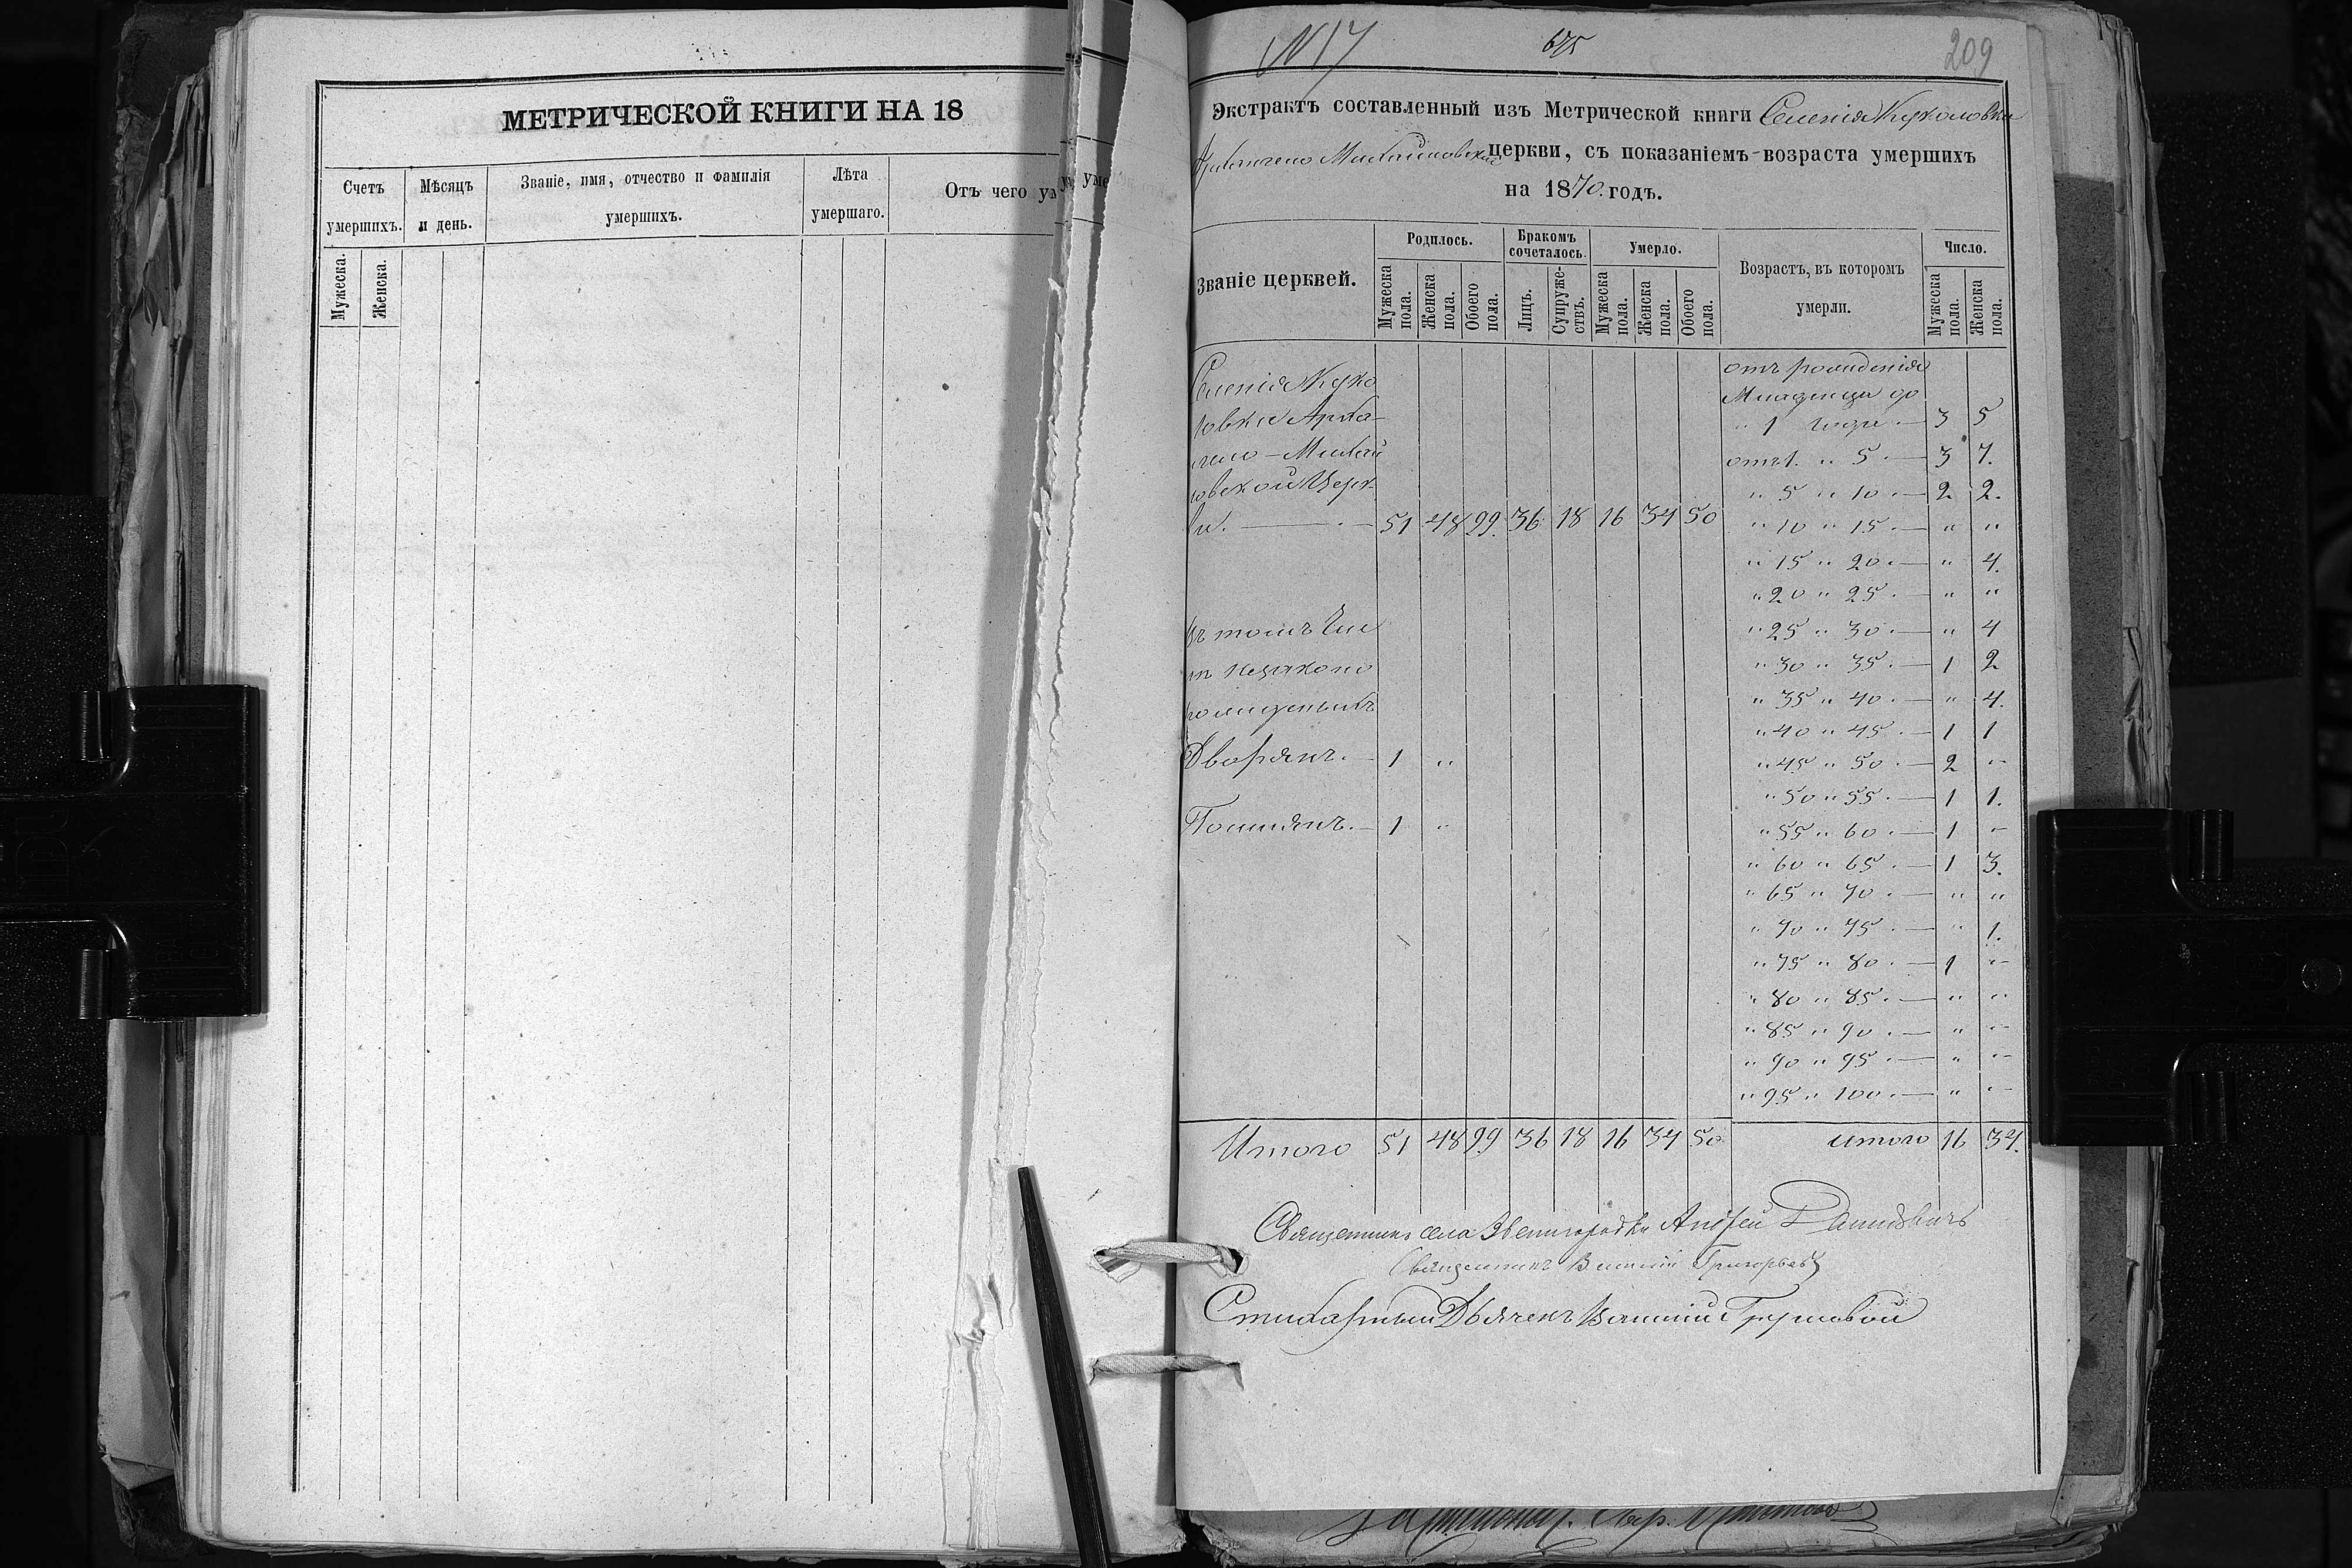 МЕТРИЧЕСКОЙ КНИГИ НА 18
Счетъ умершихъ.
Мѣсяцъ и день.
Званіе, имя, отчество и фамилія умершихъ.
Лѣта умершаго.
Отъ чего ум
Мужеска.
Женска.
N 17
675
209
Экстрактъ составленный изъ Метрической книги Селенія Жуковки
Архангело Михайловской церкви, съ показаніемъ возраста умершихъ
на 1870. годъ.
Званіе церквей.
Родилось.
Бракомъ сочеталось.
Умерло.
Возрастъ, въ которомъ умерли.
Число.
Мужеска пола.
Женска пола.
Обоего пола.
Лицъ.
Супружествъ.
Мужеска пола.
Женска пола.
Обоего пола.
Мужеска пола.
Женска пола.
отъ рожденія
Младенцы до
" 1 года — 3 5
отъ 1. " 5 — 3 7.
" 5 " 10 — 2 2.
" 10 " 15 — " "
" 15 " 20 — " 4.
" 20 " 25 — " "
" 25 " 30 — " 4
" 30 " 35 — 1 2
" 35 " 40 — " 4.
" 40 " 45 — 1 1
" 45 " 50 — 2 "
" 50 " 55 — 1 1.
" 55 " 60 — 1 "
" 60 " 65 — 1 3.
" 65 " 70 — " "
" 70 " 75 — " 1.
" 75 " 80 — 1 "
" 80 " 85 — " "
" 85 " 90 — " "
" 90 " 95 — " "
" 95 " 100 — " "
Селенія
Арха-
-Михай
ловской Церк-
ви. — 51 48 99. 36 18 16 34 50
въ томъ чис
незаконо
рожденныхъ
Дворянъ. — 1 "
1 "
Итого 51 48 99 36 18 16 34 50 итого 16 34.
Священникъ села Звенигородки Андрей
Священникъ Василій Григорьевъ
Стихарный Дьячекъ Василій